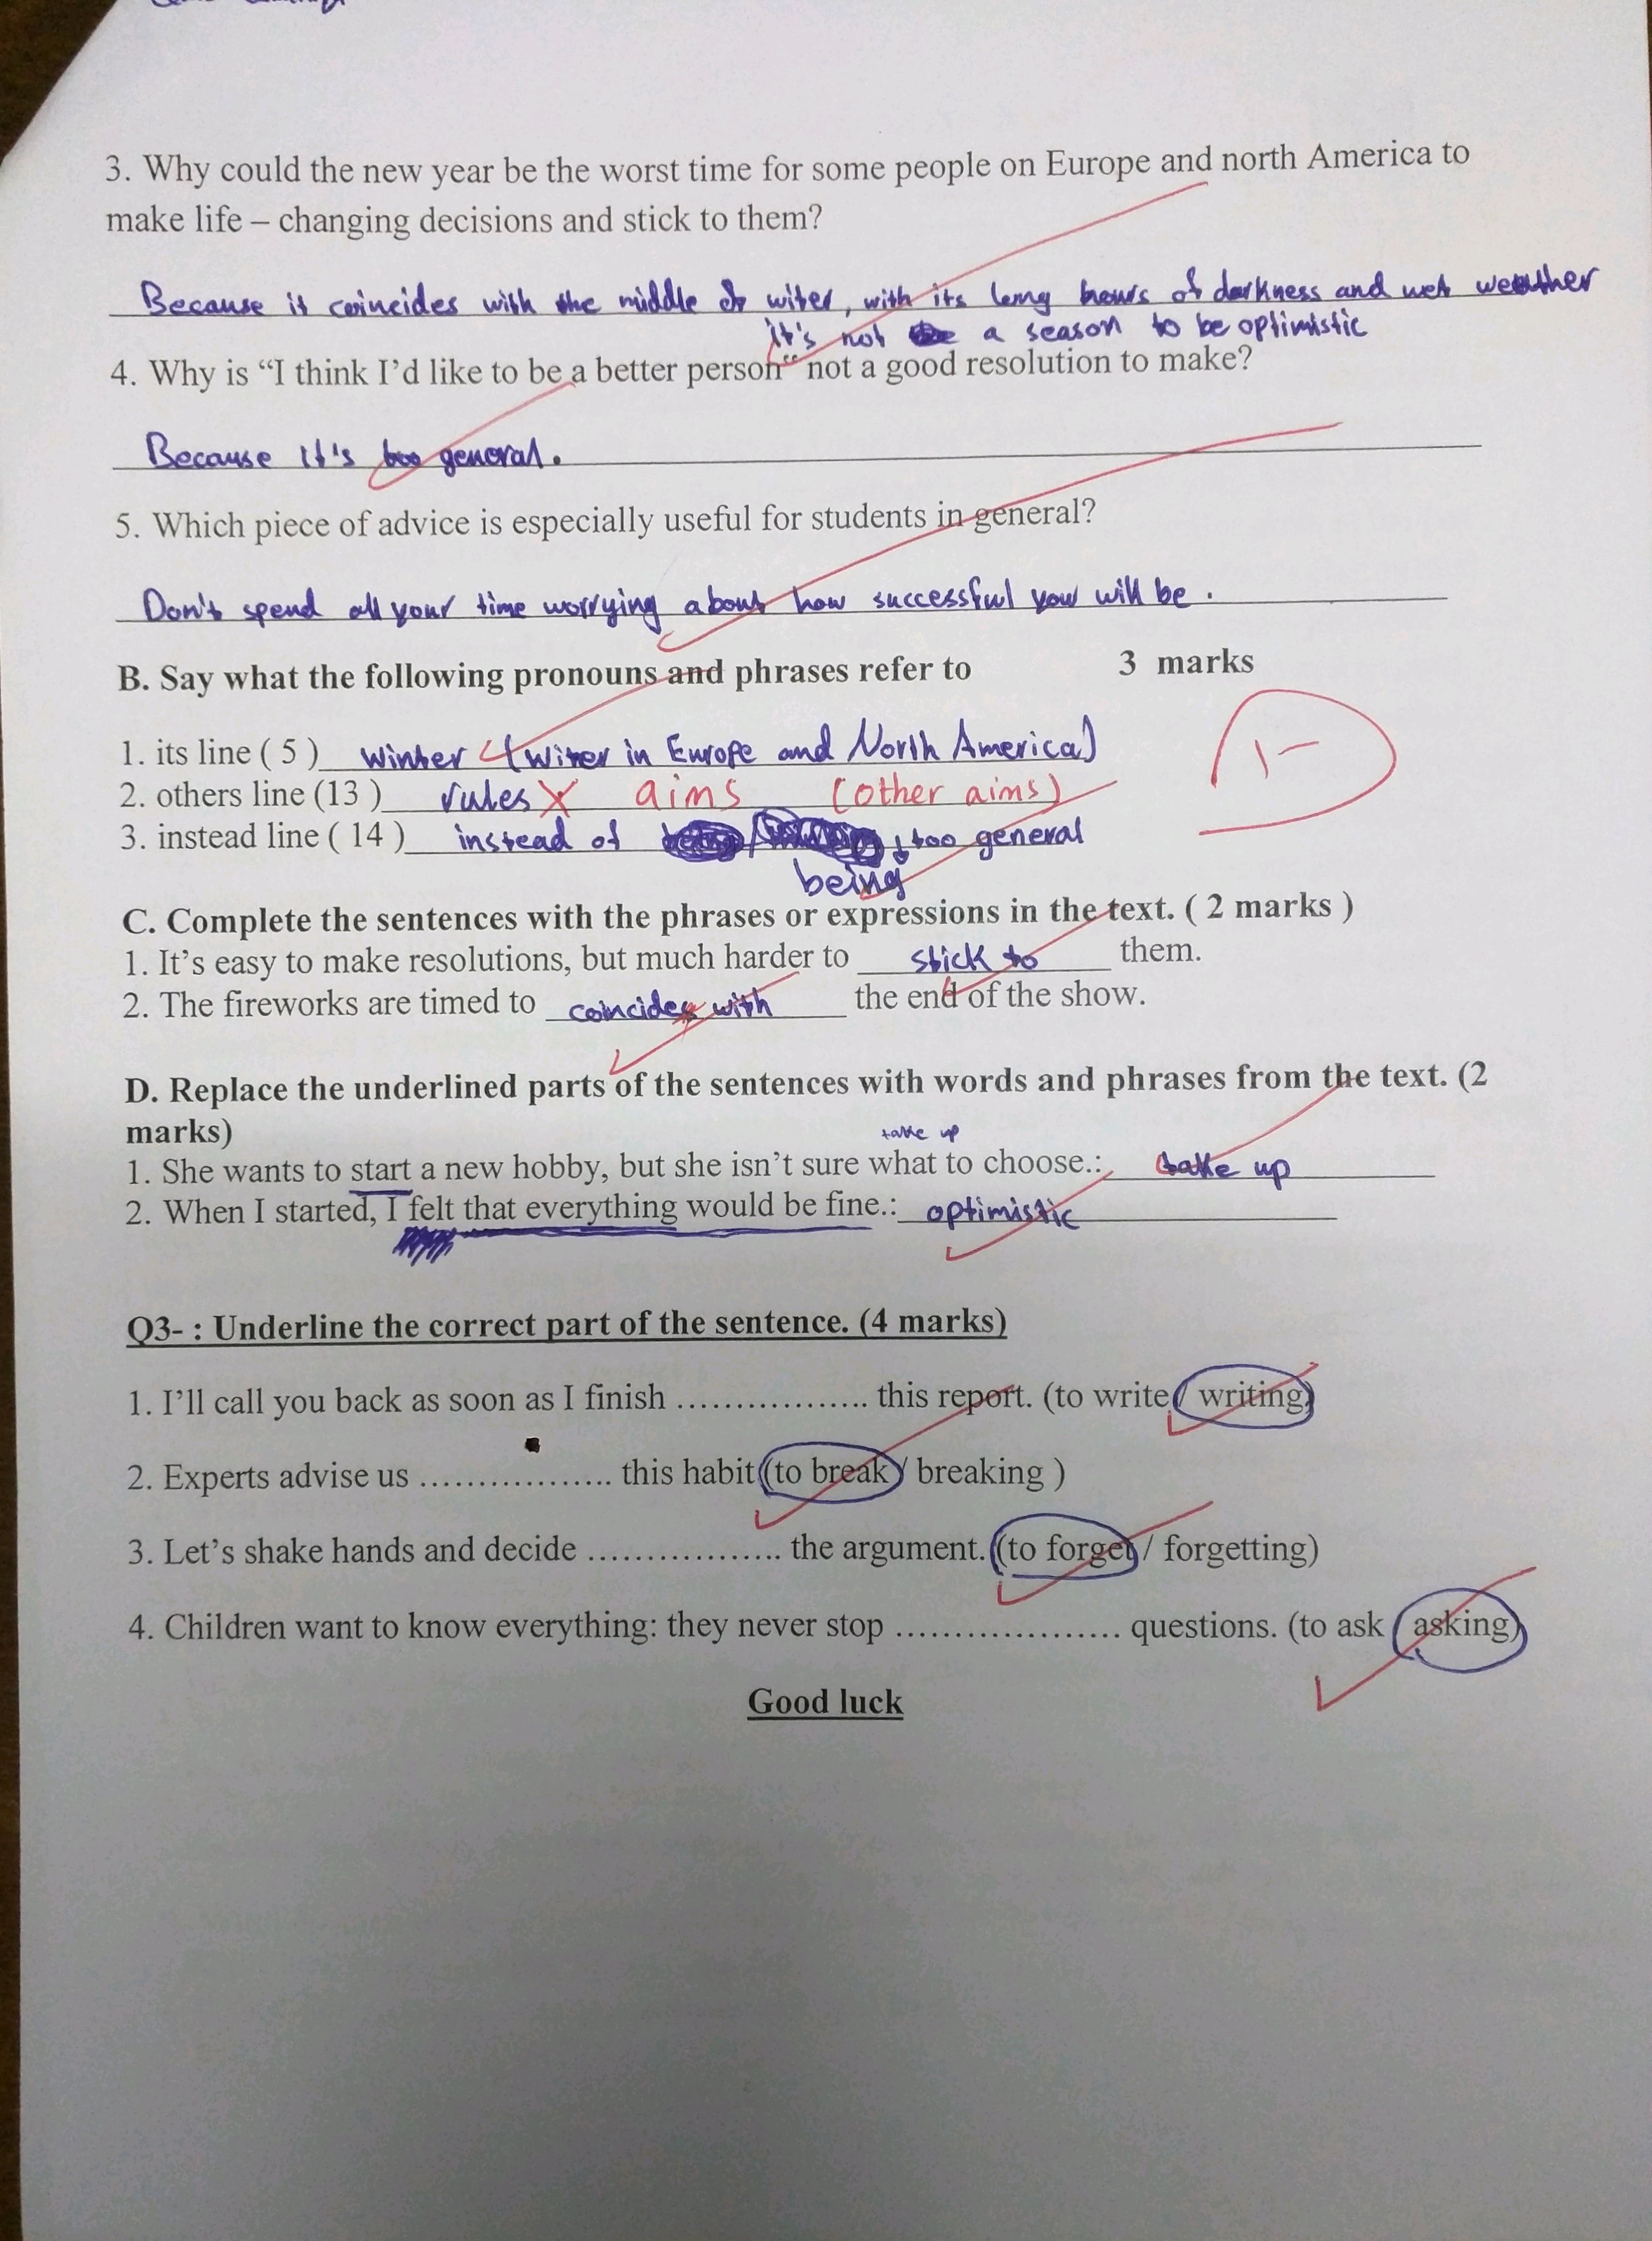 3. Why could the new year be the worst time for some people on Europe and north America to
make life – changing decisions and stick to them?
Because it coincides with the middle of witer, with its long hours of darkness and wet weather
it's not a season to be optimistic
4. Why is “I think I’d like to be a better person“ not a good resolution to make?
Because it's too general.
5. Which piece of advice is especially useful for students in general?
Don't spend all your time worrying about how successful you will be.
B. Say what the following pronouns and phrases refer to 3 marks
1. its line ( 5 ) winter (witer in Europe and North America)
2. others line (13 ) rules X aims (other aims)
1-
3. instead line ( 14 ) instead of too general
being
C. Complete the sentences with the phrases or expressions in the text. ( 2 marks )
1. It’s easy to make resolutions, but much harder to stick to them.
2. The fireworks are timed to coincides with the end of the show.
D. Replace the underlined parts of the sentences with words and phrases from the text. (2
marks)
take up
1. She wants to start a new hobby, but she isn’t sure what to choose.: take up
2. When I started, I felt that everything would be fine.: optimistic
Q3- : Underline the correct part of the sentence. (4 marks)
1. I’ll call you back as soon as I finish ................. this report. (to write / writing)
2. Experts advise us ................. this habit (to break / breaking )
3. Let’s shake hands and decide ................. the argument. (to forget / forgetting)
4. Children want to know everything: they never stop .................... questions. (to ask / asking)
Good luck